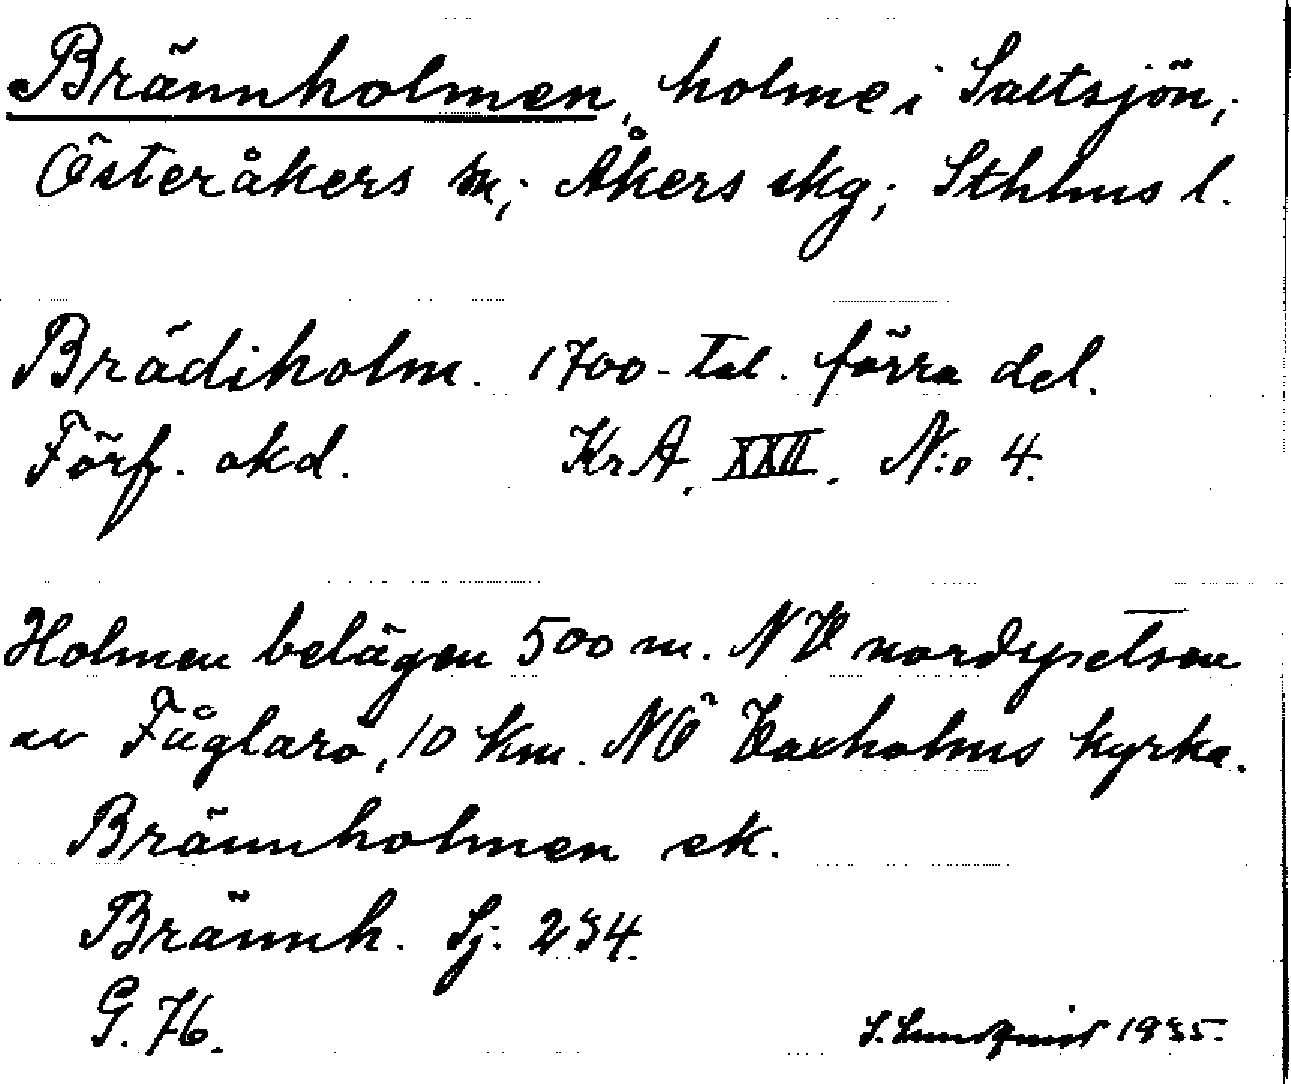 Brännholmen, holme i Saltsjön,
Österåkers sn, Åkers skg; Sthlms l.
Brädiholm. 1700-tal. förra del.
Förf. okd. KrA. XXII. N:o 4.
Holmen belägen 500 m. NV nordspetsen
av Fåglarö, 10 km. NÖ Vaxholms kyrka.
Brännholmen ek.
Brännh. Sj. 234.
G. 76.
S. Lundqvist 1935.